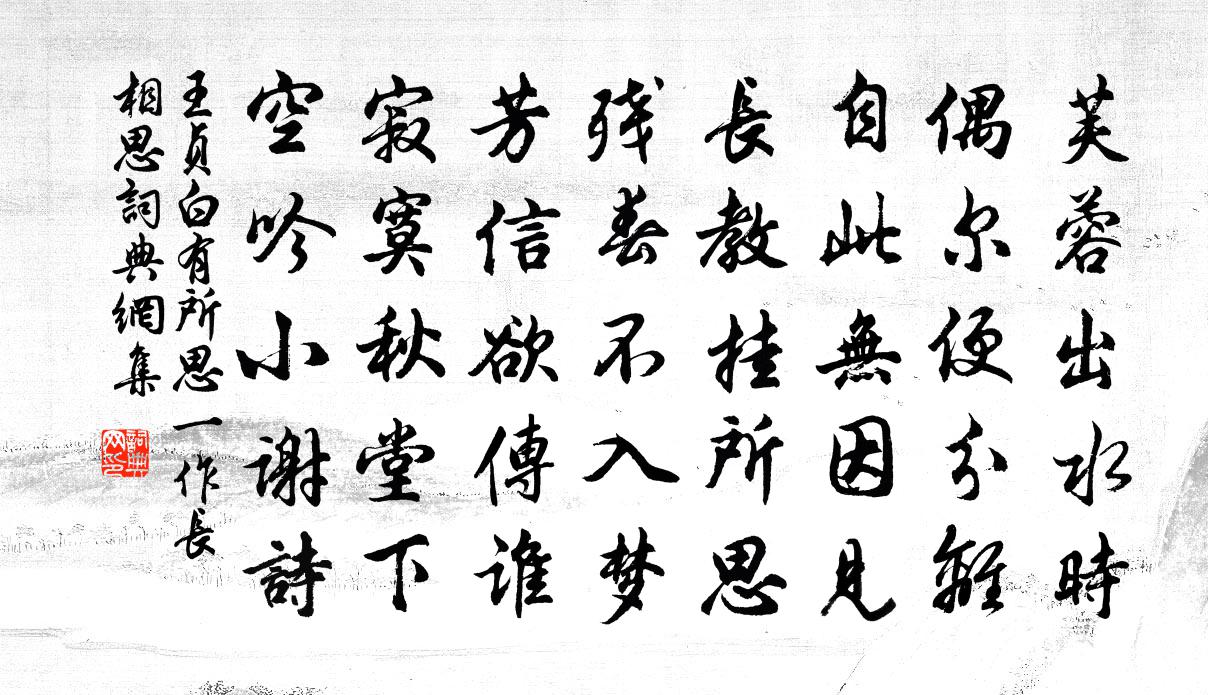 芙蓉出水時
偶尔便分離
自此無因見
長教挂所思
残春不入梦
芳信欲傳誰
寂寞秋堂下
空吟小謝詩
王貞白有所思一作長
相思詞典網集
詞典网印